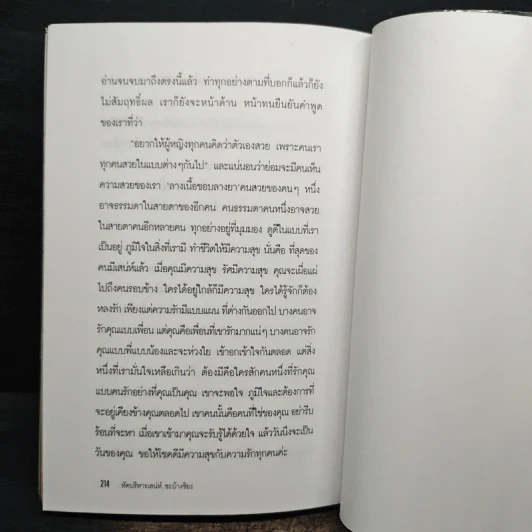 อ่านจนจบมาถึงตรงนี้แล้ว ทำทุกอย่างตามที่บอกก็แล้วก็ยัง
ไม่สัมฤทธิ์ผล เราก็ยังจะหน้าด้าน หน้าทนยืนยันคำพูด
ของเราที่ว่า
"อยากให้ผู้หญิงทุกคนคิดว่าตัวเองสวย เพราะคนเรา
ทุกคนสวยในแบบต่างๆกันไป" และแน่นอนว่าย่อมจะมีคนเห็น
ความสวยของเรา 'ลางเนื้อชอบลางยา' คนสวยของคนๆ หนึ่ง
อาจธรรมดาในสายตาของอีกคน คนธรรมดาคนหนึ่งอาจสวย
ในสายตาคนอีกหลายคน ทุกอย่างอยู่ที่มุมมอง ดูดีในแบบที่เรา
เป็นอยู่ ภูมิใจในสิ่งที่เรามี ทำชีวิตให้มีความสุข นั่นคือ ที่สุดของ
คนมีเสน่ห์แล้ว เมื่อคุณมีความสุข รัศมีความสุข คุณจะเผื่อแผ่
ไปถึงคนรอบข้าง ใครได้อยู่ใกล้ก็มีความสุข ใครได้รู้จักก็ต้อง
หลงรัก เพียงแต่ความรักมีแบบแผน ที่ต่างกันออกไป บางคนอาจ
รักคุณแบบเพื่อน แต่คุณคือเพื่อนที่เขารักมากแน่ๆ บางคนอาจรัก
คุณแบบพี่แบบน้องและจะห่วงใย เข้าอกเข้าใจกันตลอด แต่สิ่ง
หนึ่งที่เรามั่นใจเหลือเกินว่า ต้องมีคือใครสักคนหนึ่งที่รักคุณ
แบบคนรักอย่างที่คุณเป็นคุณ เขาจะพอใจ ภูมิใจและต้องการที่
จะอยู่เคียงข้างคุณตลอดไป เขาคนนั้นคือคนที่ใช่ของคุณ อย่ารีบ
ร้อนที่จะหา เมื่อเขาเข้ามาคุณจะรับรู้ได้ด้วยใจ แล้ววันนึงจะเป็น
วันของคุณ ขอให้โชคดีมีความสุขกับความรักทุกคนค่ะ
214 หัดบริหารเสน่ห์..ซะบ้างซิยะ